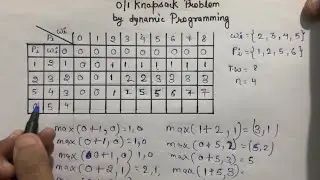 0/1 Knapsack Problem
by dynamic Programming
wi
Pi wi 0 0 1 2 3 4 5 6 7 8
0 0 0 0 0 0 0 0 0
1 2 1 0 0 1 1 1 1 1 1 1
2 3 2 0 0 1 2 2 3 3 3 3
5 4 3 0 0 1 2 5 5 6 7 7
5 4
wi = {2, 3, 4, 5}
Pi = {1, 2, 5, 6}
T.W = 8
n = 4
max(0+1, 0) = 1, 0
max(0+1, 0) = 1, 0
max(0+1, 0) = 1, 0
max(0+2, 1) = 2, 1
max(1+2, 1) = (3, 1)
max(0+5, 2) = (5, 2)
max(0+5, 3) = 5
max(1+5, 3) =